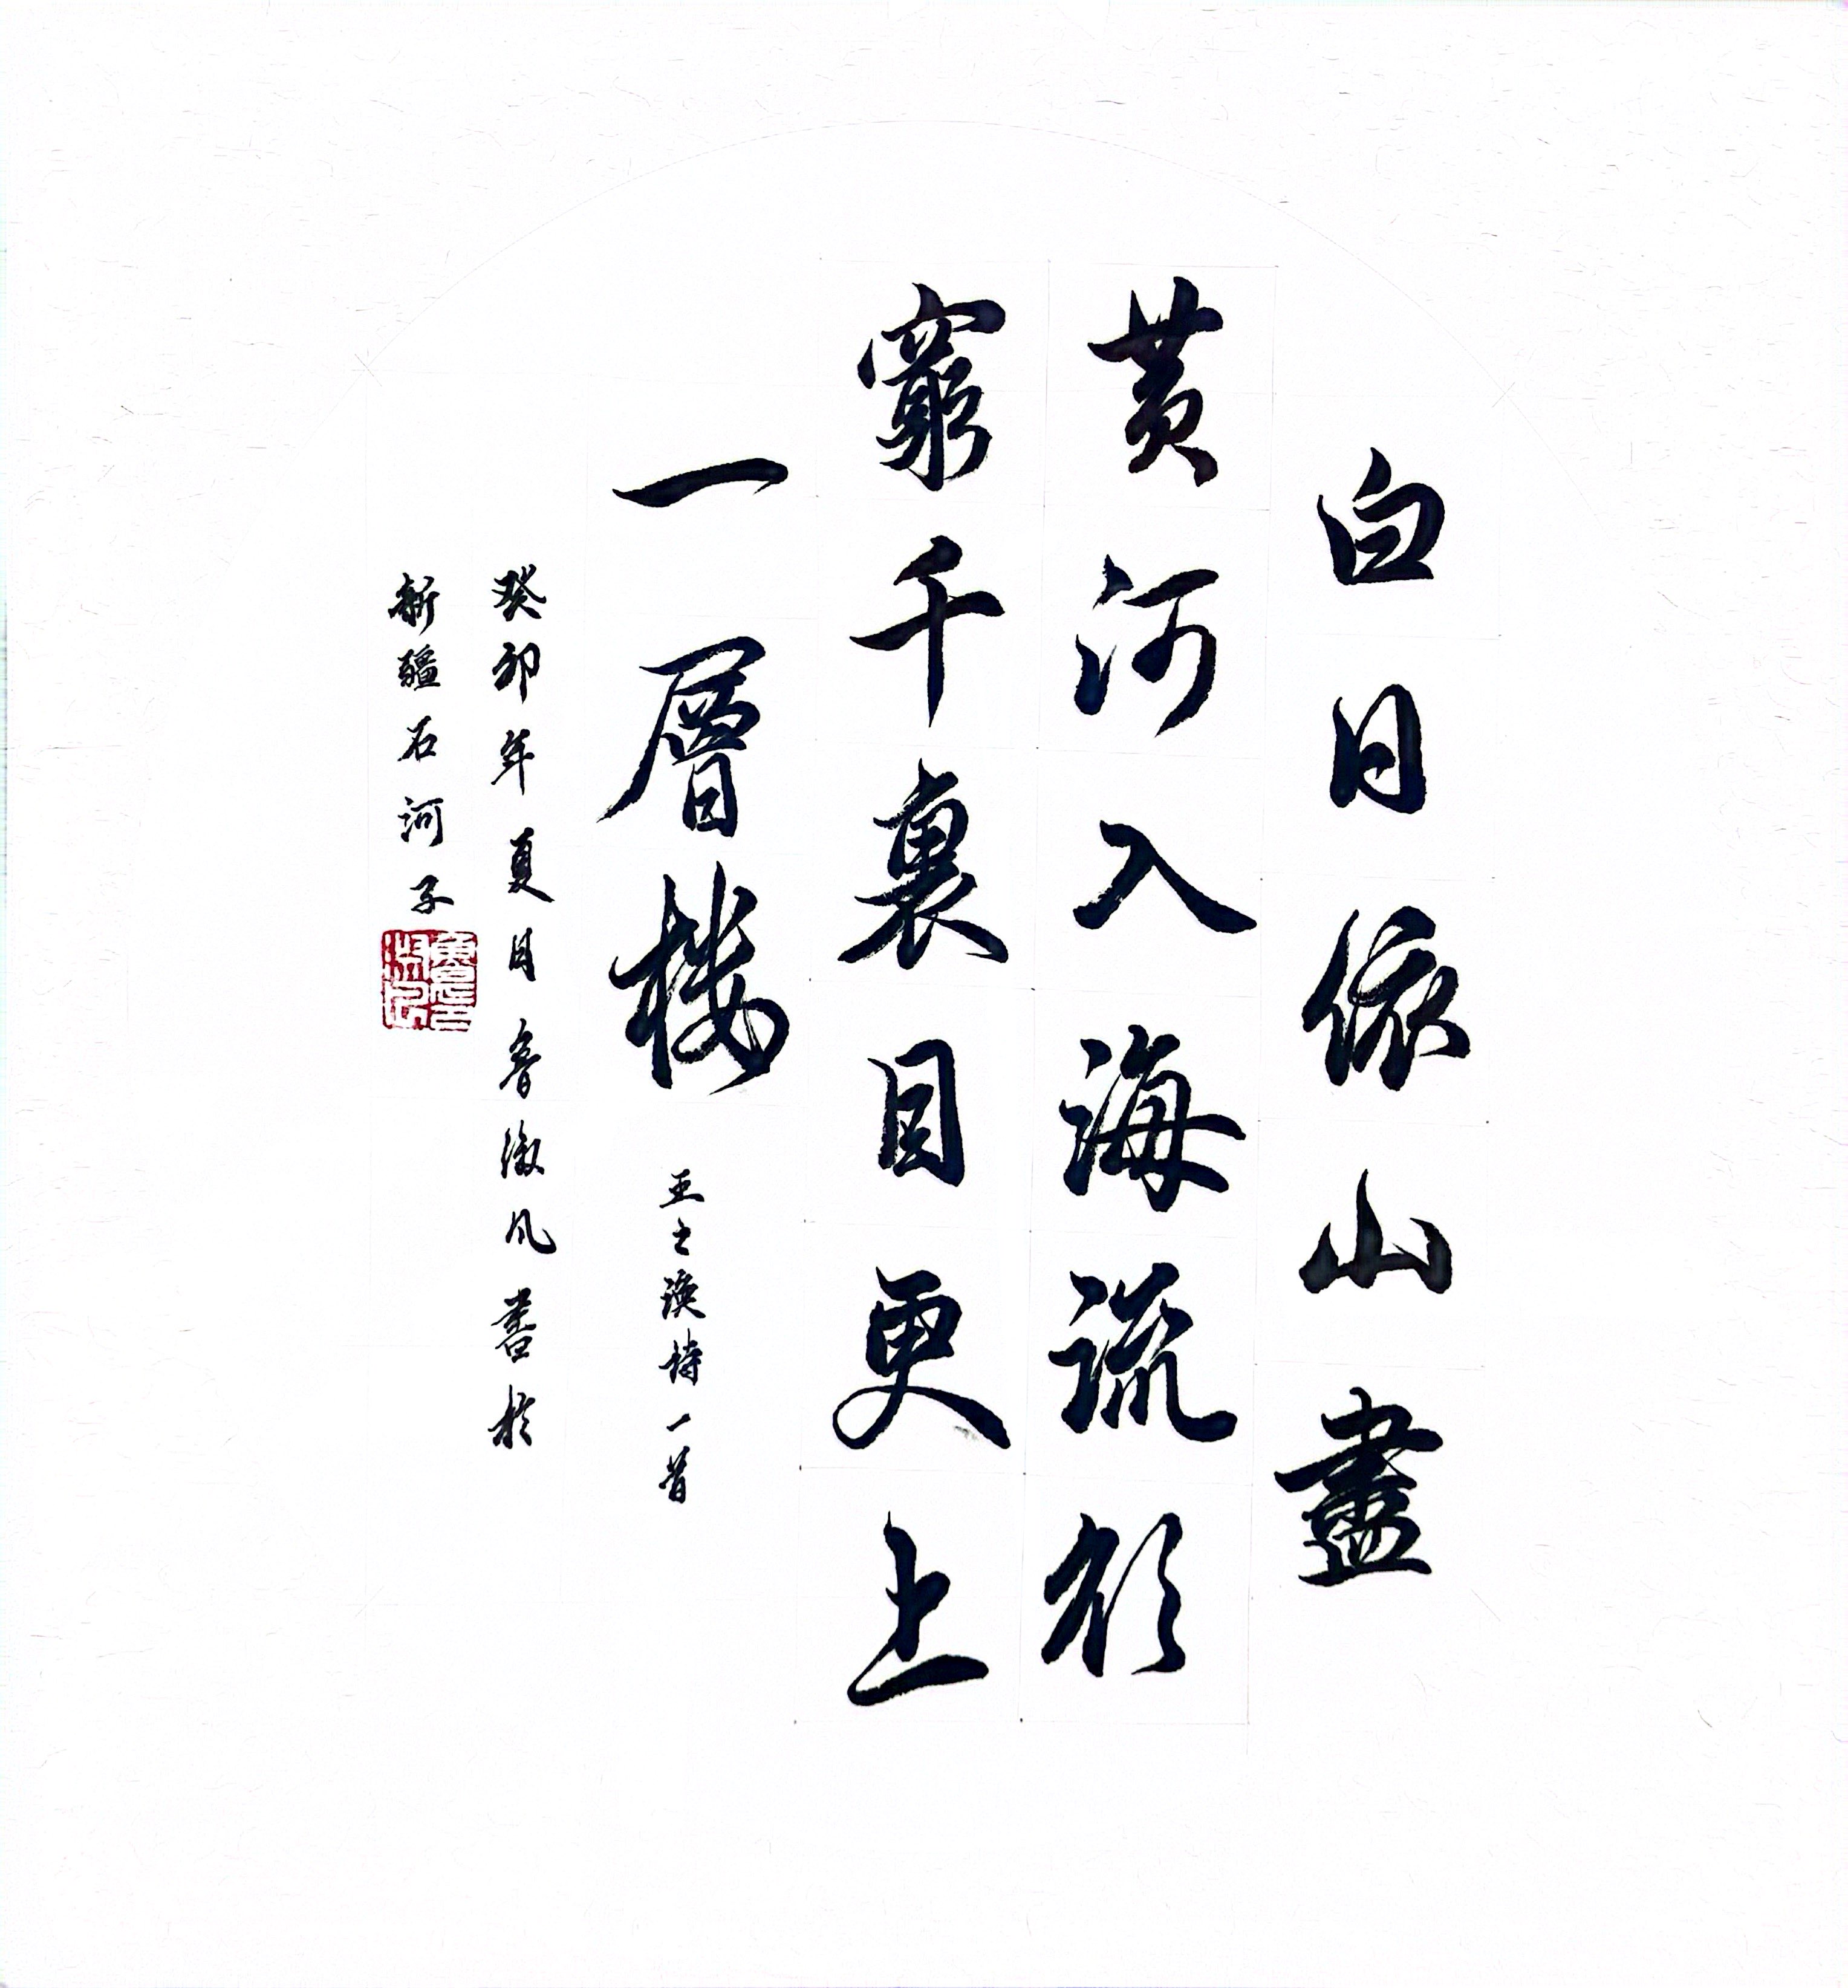 白日依山盡
黄河入海流欲
窮千裏目更上
一層楼
王之渙詩一首
癸卯年夏月魯微风書於
新疆石河子